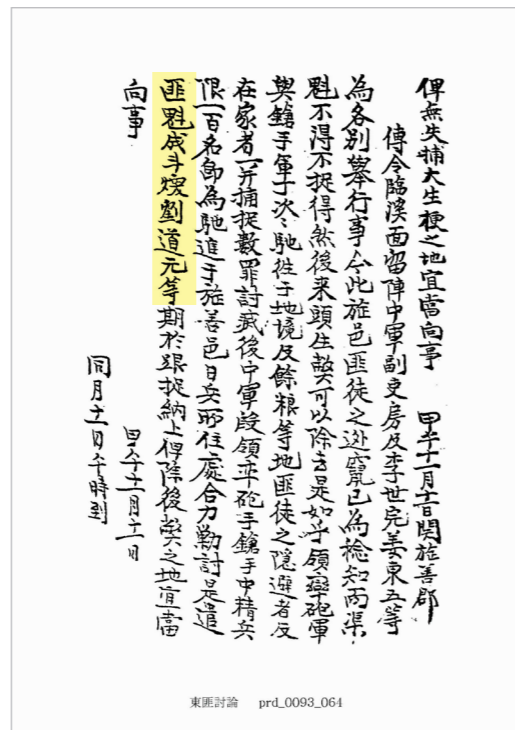 俾無失捕大生梗之地宜當向事　甲午十一月十一日関旌善郡
傳令臨溪面留陣中軍副吏房及李世完姜東五等
為各別擧行事今此旌邑匪徒之逃竄已為稔知兩渠
魁不得不捉得然後来頭生弊可以除去是如乎領率砲軍
與鎗手軍丁次々馳徃于地境及餘粮等地匪徒之隱避者及
在家者一并捕捉數罪討滅後中軍段領率砲手鎗手中精兵
限一百名卽為馳進于旌善邑日兵所住處合力勦討是遣
匪魁成斗煥劉道元等期於跟捉納上俾除後弊之地宜當
向事
甲午十一月十一日
同月十一日午時到
東匪討論　prd_0093_064